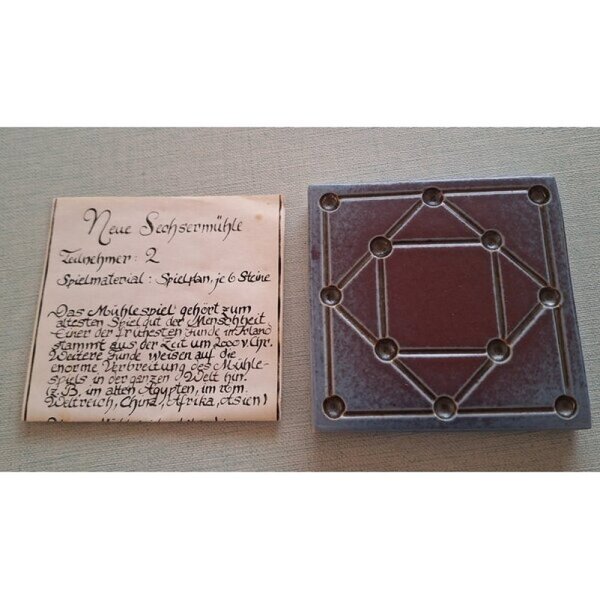 Neue Sechsermühle
Teilnehmer: 2
Spielmaterial: Spielplan, je 6 Steine
Das Mühlespiel gehört zum
ältesten Spielgut der Menschheit
Einer der frühesten Funde in Irland
stammt aus der Zeit um 2000 v. Chr.
Weitere Funde weisen auf die
enorme Verbreitung des Mühle-
spiels in der ganzen Welt hin.
(z.B. im alten Ägypten, im röm.
Weltreich, China, Afrika, Asien)